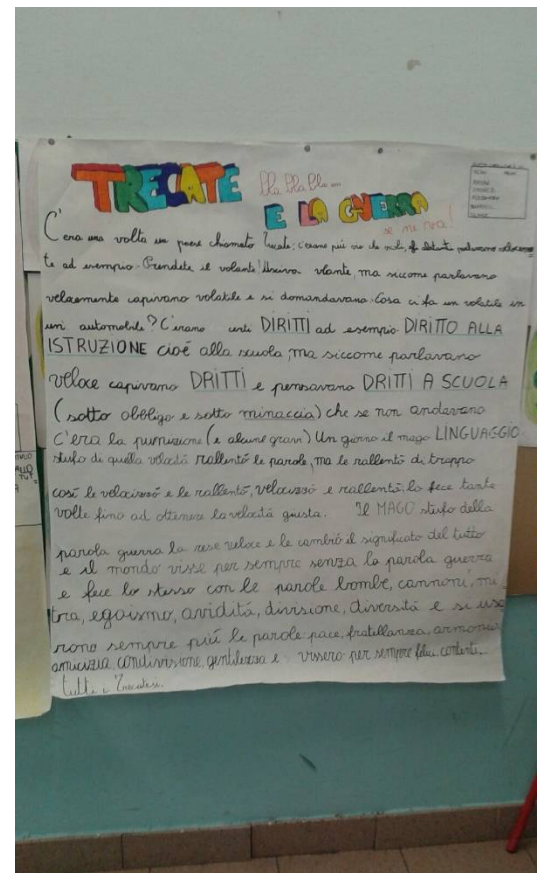 TRECATE bla bla bla ...
E LA GUERRA
se ne va!
C'era una volta un paese chiamato Trecate; c'erano più che
te ad esempio. Prendete il volante! Usciva vlante, ma siccome parlavano
velocemente capivano volatile e si domandavano. Cosa ci fa un volatile in
un automobile? C'erano certi DIRITTI ad esempio DIRITTO ALLA
ISTRUZIONE cioé alla scuola, ma siccome parlavano
veloce capivano DRITTI e pensavano DRITTI A SCUOLA
(sotto obbligo e sotto minaccia) che se non andavano
c'era la punizione (e alcune gravi) Un giorno il mago LINGUAGGIO
stufo di quella velocità rallentò le parole, ma le rallentò di troppo
così le velocizzò e le rallentò, velocizzò e rallentò, lo fece tante
volte fino ad ottenere la velocità giusta. Il MAGO stufo della
parola guerra la rese veloce e le cambiò il significato del tutto
e il mondo visse per sempre senza la parola guerra
e fece lo stesso con le parole bombe, cannoni, mi
tra, egoismo, avidità, divisione, diversità e si usa
rono sempre più le parole: pace, fratellanza, armonia
amicizia condivisione, gentilezza e vissero per sempre felici contenti
tutti i Trecatesi.